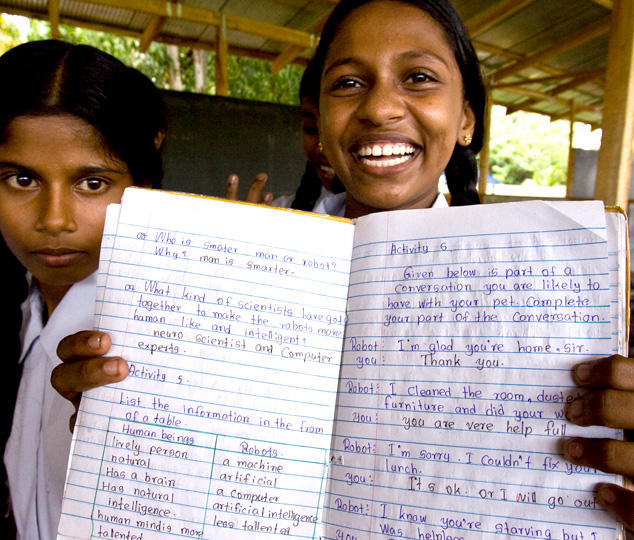 Who is smater man or robot?
Why? man is smarter.
What kind of scientists have got
together to make the robots more
human like and intelligent?
neuro scientist and computer
experts.
Activity 5.
List the information in the from
of a table.
Human beings Robots.
lively person a machine
natural artificial
Has a brain a computer
Has natural artificial intelligence
intelligence. less tallented
human mind is more
talented
Activity 6.
Given below is part of a
conversation you are likely to
have with your pet. Complete
your part of the conversation.
Robot: I'm glad you're home. Sir.
you: Thank you.
Robot: I cleaned the room, dusted
furniture and did your
you: you are vere help full
Robot: I'm sorry. I couldn't fix you
lunch.
you: It's ok. or I will go out
Robot: I know you're starving but I
Was helpless